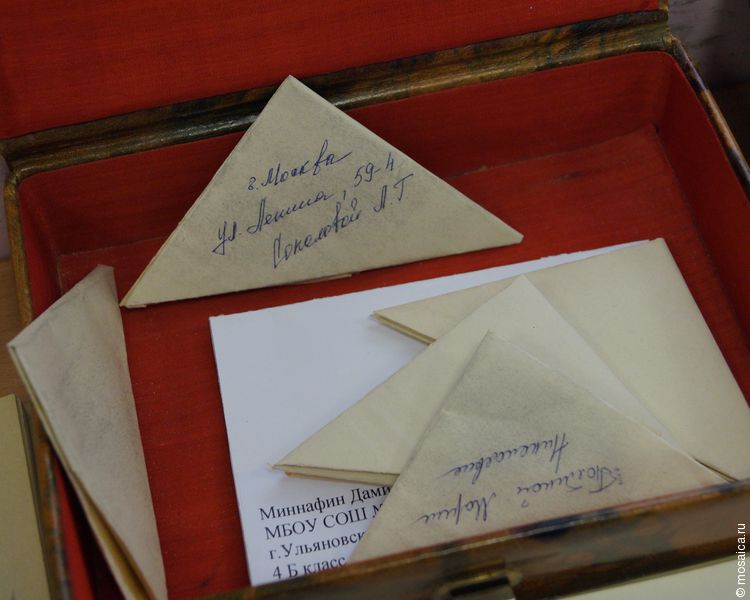 г. Москва
ул. Ленина, 59-4
Соколовой А.Г.
Марии
Николаевне
Миннафин Дами
МБОУ СОШ №
г.Ульяновск
4 Б класс
© mosaica.ru